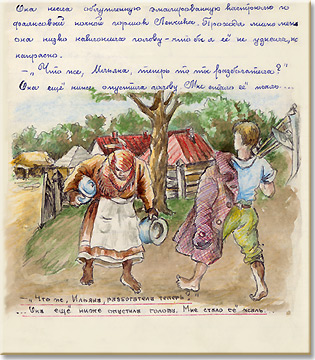 Она несла облупленную эмалированную кастрюлю и
фаянсовый ночной горшок Ленчика. Проходя мимо меня
она низко наклонила голову – что бы я её не узнала, но
напрасно.
–„Что же, Ильяна, теперь то ты разбогатела?"
Она ещё ниже опустила голову. Мне стало её жаль...
–„Что же, Ильяна, разбогатела теперь?"
...Она ещё ниже опустила голову. Мне стало её жаль...